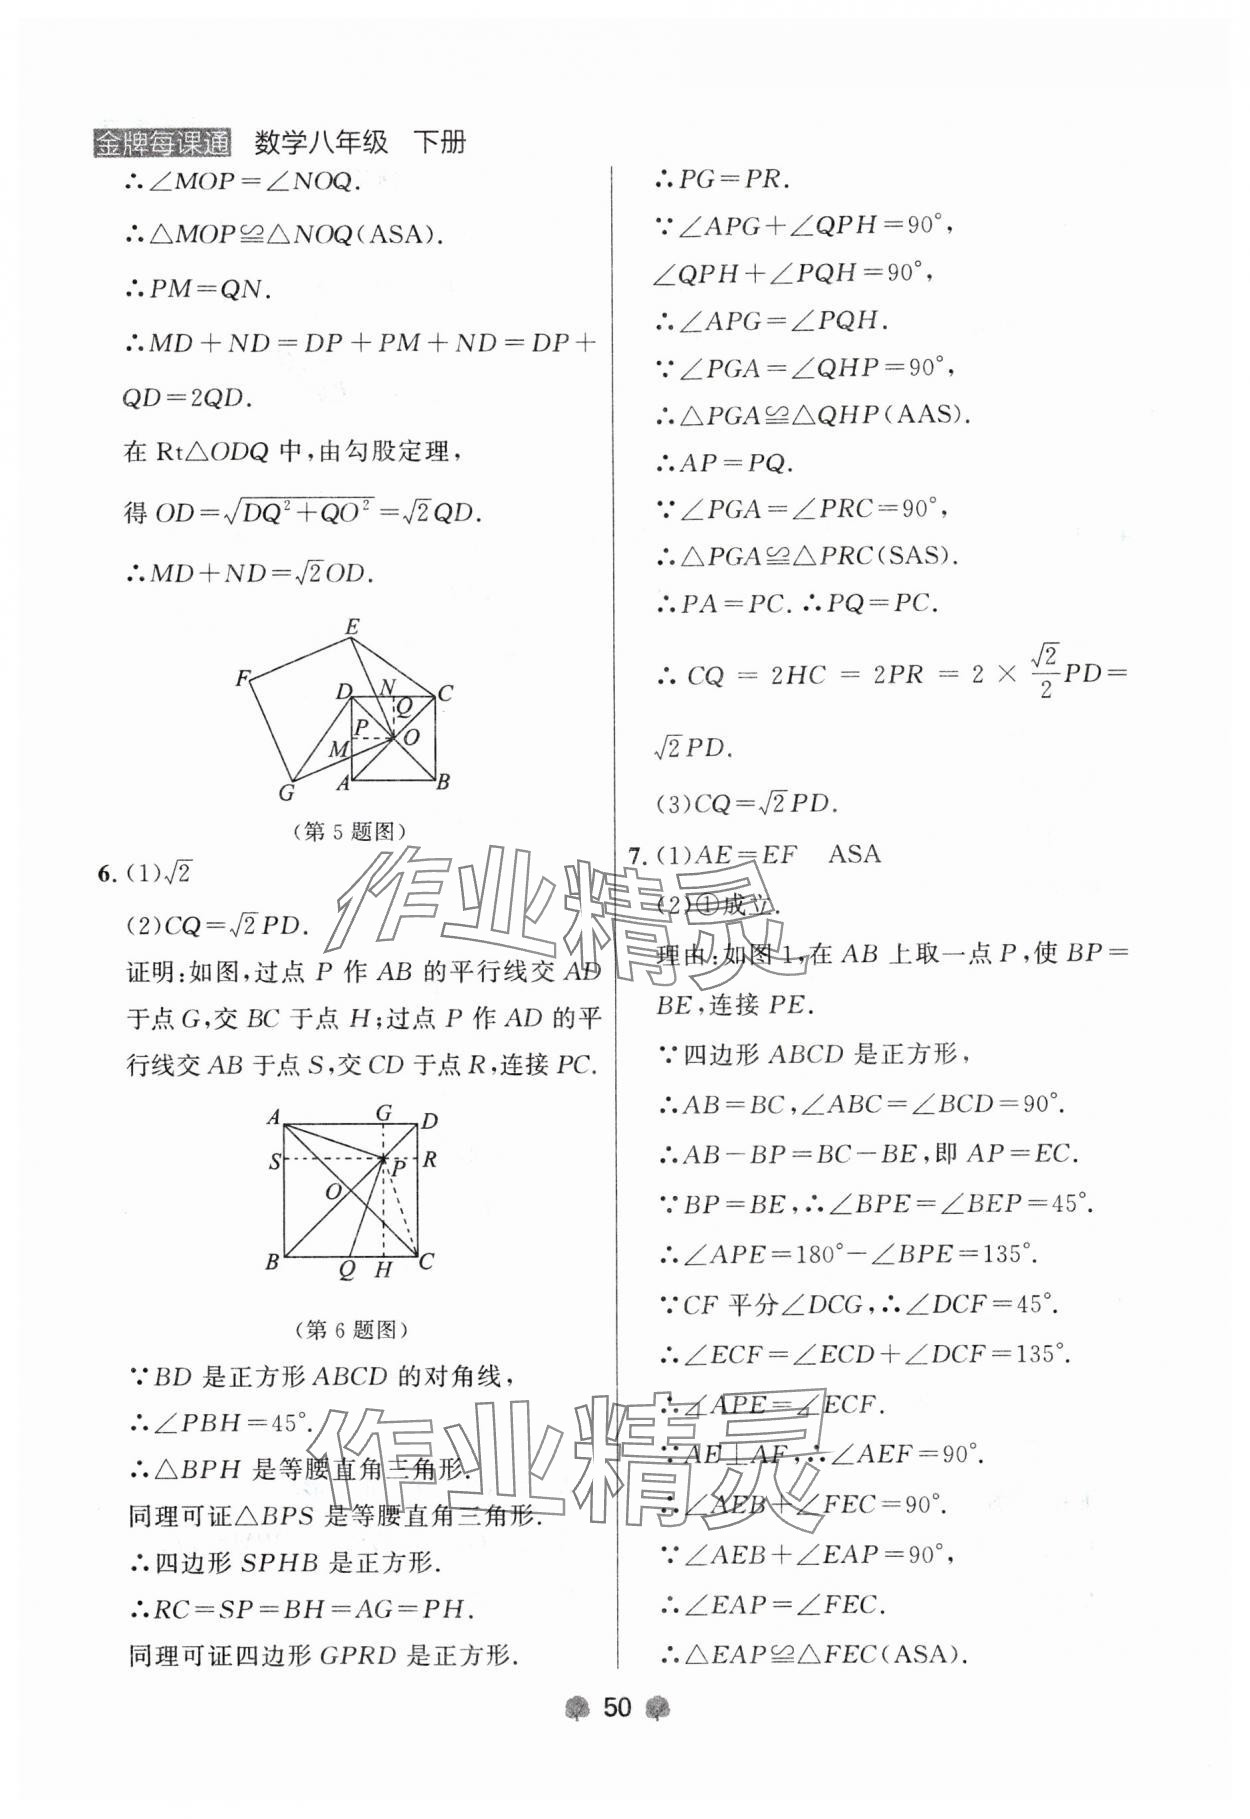 金牌每课通 数学八年级 下册
∴∠MOP=∠NOQ.
∴△MOP≌△NOQ(ASA).
∴PM=QN.
∴MD+ND=DP+PM+ND=DP+
QD=2QD.
在 Rt△ODQ 中,由勾股定理,
得 OD=√(DQ²+QO²)=√2QD.
∴MD+ND=√2OD.
E
F
D N C
P Q
M O
A B
G
(第 5 题图)
6. (1)√2
(2)CQ=√2PD.
证明:如图,过点 P 作 AB 的平行线交 AD
于点 G,交 BC 于点 H;过点 P 作 AD 的平
行线交 AB 于点 S,交 CD 于点 R,连接 PC.
A G D
S P R
O
B Q H C
(第 6 题图)
∵BD 是正方形 ABCD 的对角线,
∴∠PBH=45°.
∴△BPH 是等腰直角三角形.
同理可证△BPS 是等腰直角三角形.
∴四边形 SPHB 是正方形.
∴RC=SP=BH=AG=PH.
同理可证四边形 GPRD 是正方形.
∴PG=PR.
∵∠APG+∠QPH=90°,
∠QPH+∠PQH=90°,
∴∠APG=∠PQH.
∵∠PGA=∠QHP=90°,
∴△PGA≌△QHP(AAS).
∴AP=PQ.
∵∠PGA=∠PRC=90°,
∴△PGA≌△PRC(SAS).
∴PA=PC.∴PQ=PC.
∴ CQ = 2HC = 2PR = 2 × √2/2 PD=
√2PD.
(3)CQ=√2PD.
7. (1)AE=EF ASA
(2)①成立.
理由:如图 1,在 AB 上取一点 P,使 BP=
BE,连接 PE.
∵四边形 ABCD 是正方形,
∴AB=BC,∠ABC=∠BCD=90°.
∴AB-BP=BC-BE,即 AP=EC.
∵BP=BE,∴∠BPE=∠BEP=45°.
∴∠APE=180°-∠BPE=135°.
∵CF 平分∠DCG,∴∠DCF=45°.
∴∠ECF=∠ECD+∠DCF=135°.
∴∠APE=∠ECF.
∵AE⊥AF,∴∠AEF=90°.
∴∠AEB+∠FEC=90°.
∵∠AEB+∠EAP=90°,
∴∠EAP=∠FEC.
∴△EAP≌△FEC(ASA).
50
作业精灵
作业精灵